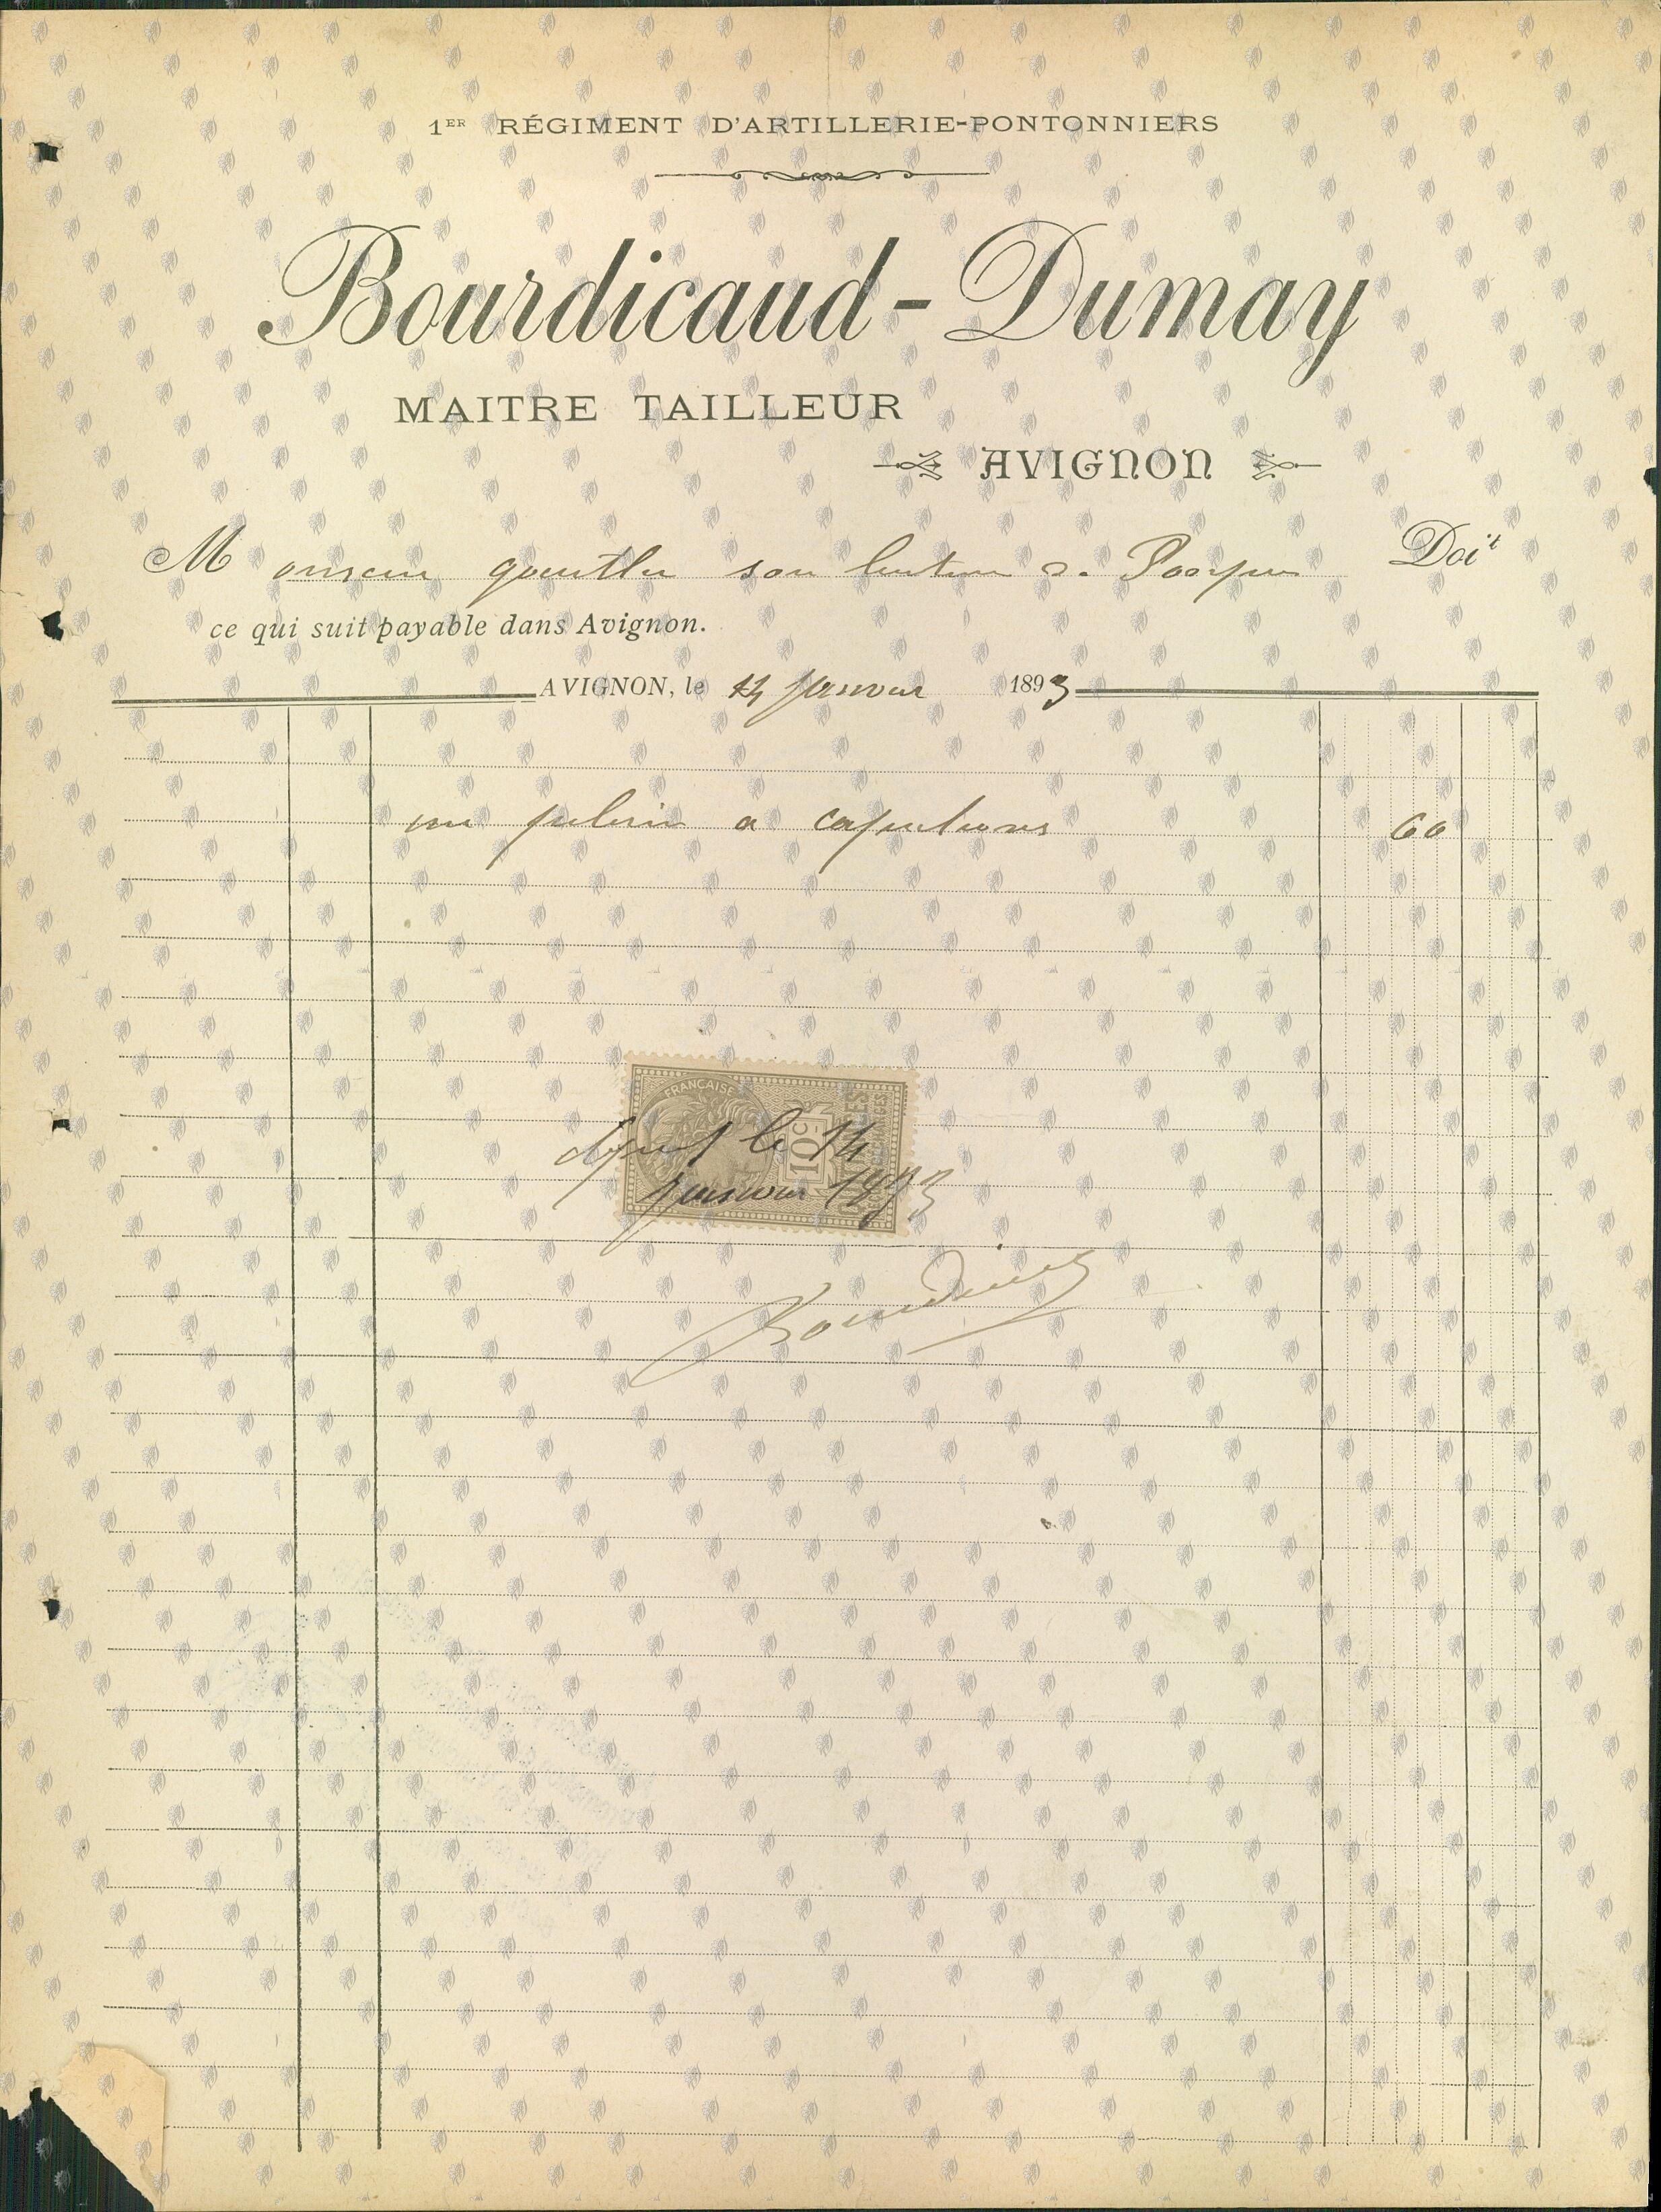 1ER RÉGIMENT D'ARTILLERIE-PONTONNIERS
Bourdicaud-Dumay
MAITRE TAILLEUR
AVIGNON
Monsieur sou lieutenant Doit
ce qui suit payable dans Avignon.
AVIGNON, le 14 janvier 1893
une pelerine a capuchons 60
FRANÇAISE
10c
le 14
janvier 1893